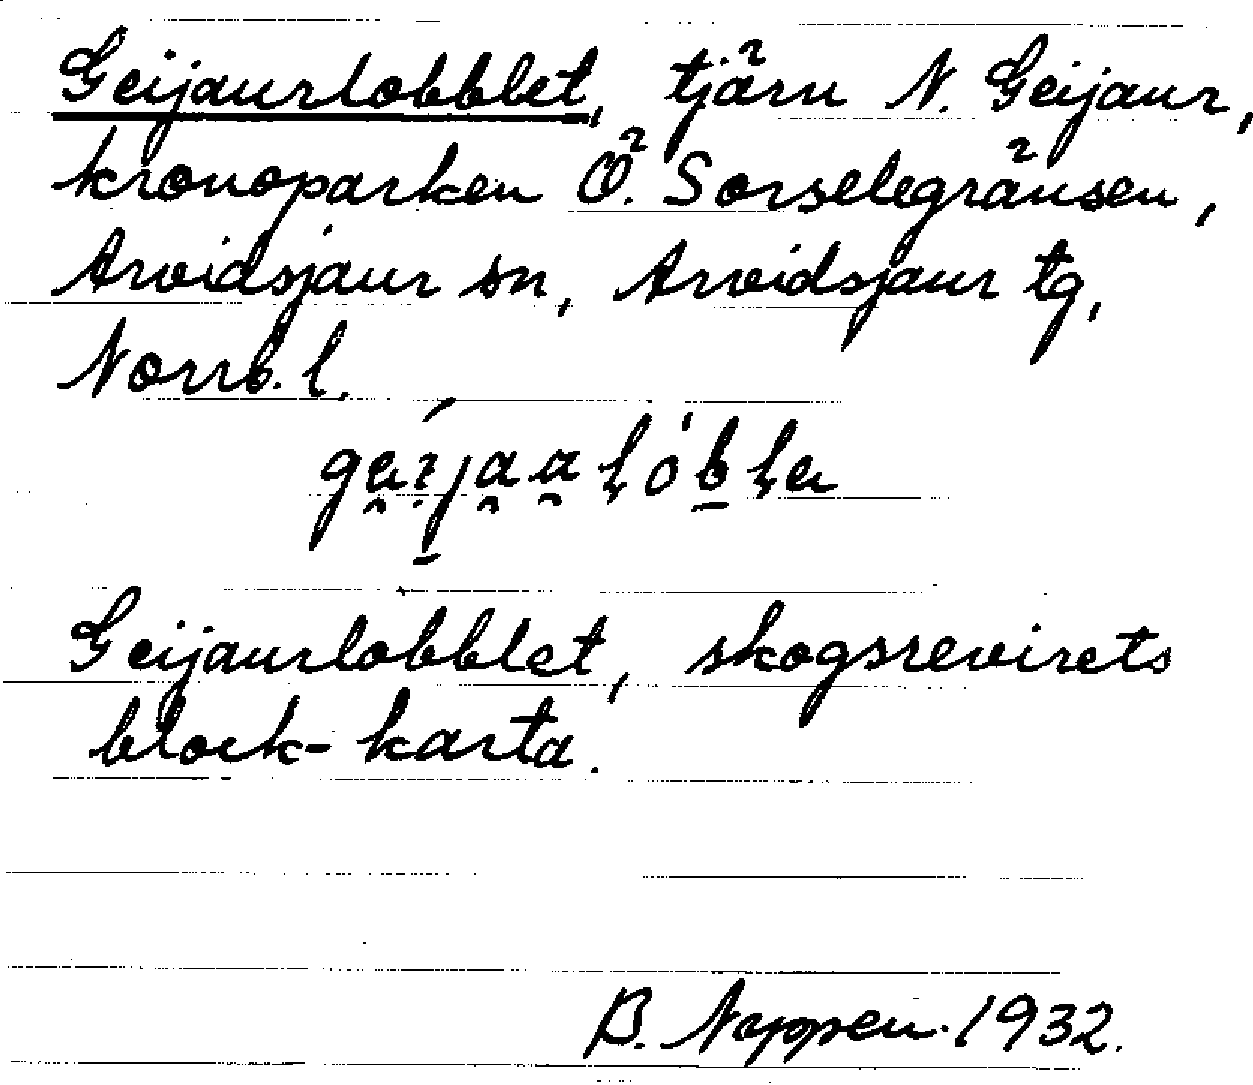 Geijaurlobblet, tjärn N. Geijaur,
kronoparken Ö. Sorselegränsen,
Arvidsjaur sn, Arvidsjaur tg,
Norrb. l.
Geijaurlobblet, skogsrevirets
block-karta.
B. Nappen 1932.